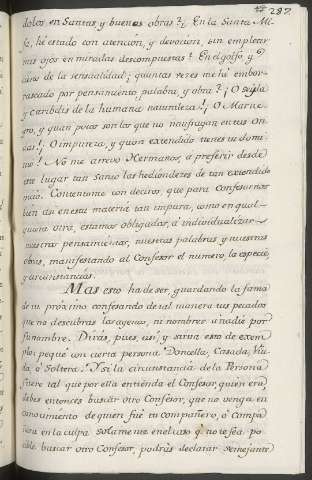 287
dolos, en Santas, y buenas obras? ¿En la Santa Mi-
sa, hé estado con atencion, y devocion, sin emplear
mis ojos en miradas descompuestas? En el golfo, y
de la sensualidad; quantas vezes me hé embor-
rascado por pensamiento, palabra, y obra? ¡O Scila
y caribdis de la humana naturaleza! ¡O Mar ne-
gro, y quan pocos son los que no naufragan en tus on-
das! ¡O impureza, y quan extendido tienes tu domi-
nio! No me atrevo Hermanos, á preferir desde
este lugar tan santo las hediondezes de tan extendido
mal. Contentome con deciros, que para confesarnos
bien asi en esta materia tan impura, como en qual-
quiera otra, estamos obligados, á individualizar
nuestros pensamientos, nuestras palabras y nuestras
obras, manifestando al Confesor el numero, la especie,
y circunstancias.
Mas esto ha de ser, guardando la fama
de tu proximo confesando de tal manera tus pecados
que no descubras los agenos, ni nombres á nadie por
su nombre. Dirás, pues, asi, y sirva esto de exem-
plo: pequé con cierta persona Doncella, Casada, Viu-
da, ó Soltera. Y si la circunstancia de la Persona
fuere tal que por ella entienda el Confesor, quien era;
debes entonces buscar otro Confesor, que no venga en
conocimiento de quien fué tu compañero, ó compa-
ñera en la culpa solamente en el caso q. no te sea po-
sible buscar otro Confesor, podrás declarar semejante